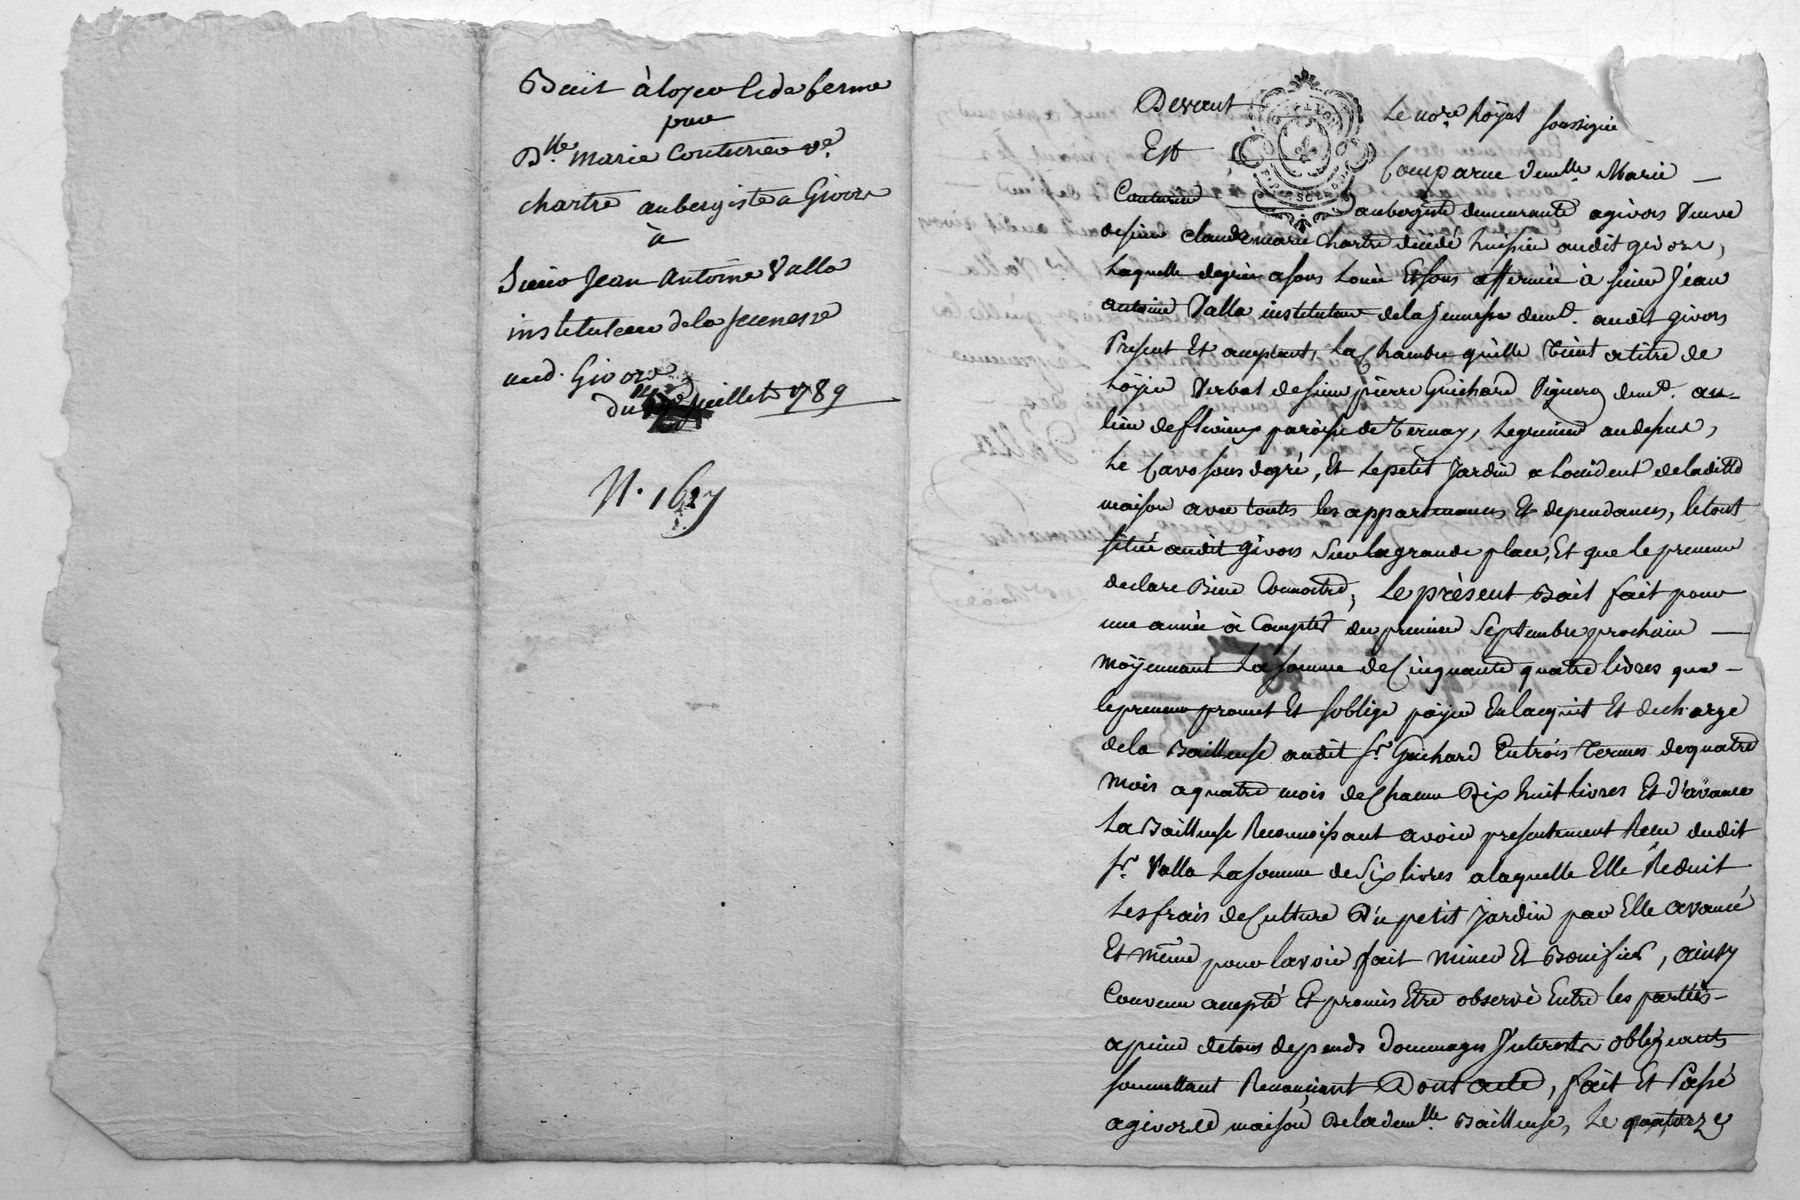 Bail à loyer et de ferme
par
D.lle marie Couturier v.e
chartre aubergiste a Givors
à
Sieur Jean Antoine Valla
instituteur de la jeunesse
aud. Givors
du juillet 1789
N. 1627
Devant Le no.re Royal soussigné
Est Comparue demlle Marie
Couturier aubergiste demeurante a givors veuve
de sieur claude marie Chartre décédé huissier audit givors,
Laquelle de gré a sous Loué Et sous affermé à sieur Jéan
antoine Valla instituteur de la jeunesse demt. audit givors
Présent Et acceptant, La Chambre qu'elle tient a titre de
Loÿer Verbal de sieur pierre Guichard Vigneron demt. au
lieu de parroisse de Ternay, Le grenier au dessus,
Le Cavo sous degré, Et Le petit Jardin a Loccident de laditte
maison avec toutes les appartenances Et dependances, le tout
situé audit givors Sur la grande place, Et que le preneur
declare Bien Connoitre, Le présent Bail fait pour
une année à Compter du premier Septembre prochain
moÿennant La somme de Cinquante quatre livres que
le preneur promet Et soblige païer En lacquit Et decharge
de la Bailleuse audit sr. Guichard En trois Termes de quatre
mois a quatre mois de Chacun Dix huit livres Et d'avance
La Bailleuse Reconnoissant avoir presentement Recu dudit
sr. Valla La somme de Six livres a laquelle Elle Reduit
Les frais de Culture Du petit jardin par Elle avancé
Et même pour lavoir fait miner Et Bonifier, ainsy
Convenu accepté Et promis Etre observé Entre les parties
a peine de tous depends Dommages Interests obligeants
soumettant Renonçant Dont acte, fait Et Passé
a givors maison De la demlle Bailleuse, Le quatorze